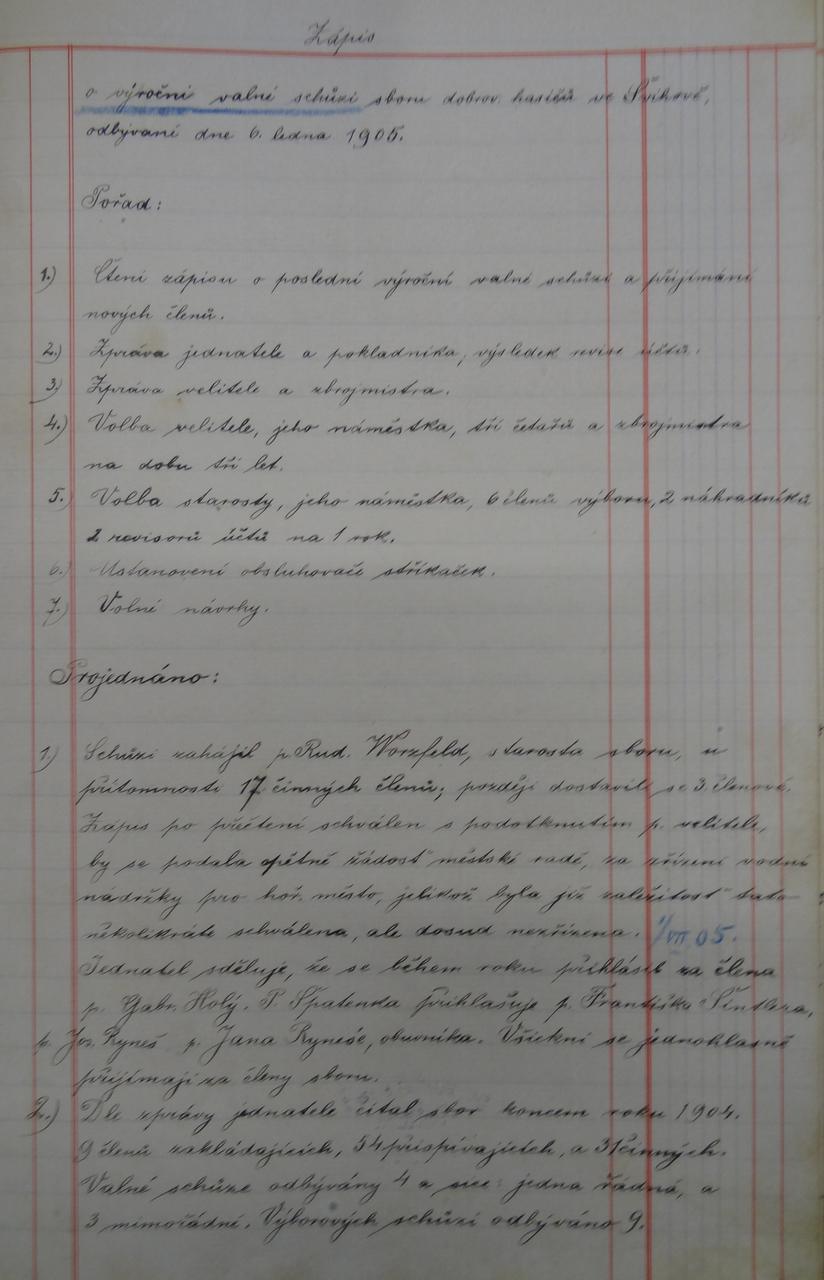 Zápis
o výroční valné schůzi sboru dobrov. hasičů ve Švihově,
odbývané dne 6. ledna 1905.
Pořad:
1.) Čtení zápisu o poslední výroční valné schůzi a přijímání
nových členů.
2.) Zpráva jednatele a pokladníka, výsledek revise účtů.
3.) Zpráva velitele a zbrojmistra.
4.) Volba velitele, jeho náměstka, tří četařů a zbrojmistra
na dobu tří let.
5.) Volba starosty, jeho náměstka, 6 členů výboru, 2 náhradníků
2 revisorů účtů na 1 rok.
6.) Ustanovení obsluhovačů stříkaček.
7.) Volné návrhy.
Projednáno:
1.) Schůzi zahájil p. Rud. Worzfeld, starosta sboru, u
přítomnosti 17 činných členů; později dostavili se 3 členové.
Zápis po přečtení schválen s podotknutím p. velitele,
by se podala opětně žádosť městské radě, za zřízení vodní
nádržky pro hoř. město, jelikož byla již záležitosť tato
několikráte schválena, ale dosud nezřízena. 1/VII 05.
Jednatel sděluje, že se během roku přihlásil za člena
p. Gabr. Holý. P. Špatenka přihlašuje p. Františka Šintlera,
p. Jos. Ryneš p. Jana Ryneše, obuvníka. Všickni se jednohlasně
přijímají za členy sboru.
2.) Dle zprávy jednatele čítal sbor koncem roku 1904.
9 členů zakládajících, 54 přispívajících, a 31 činných.
Valné schůze odbývány 4 a sice: jedna řádná, a
3 mimořádné. Výborových schůzí odbýváno 9.